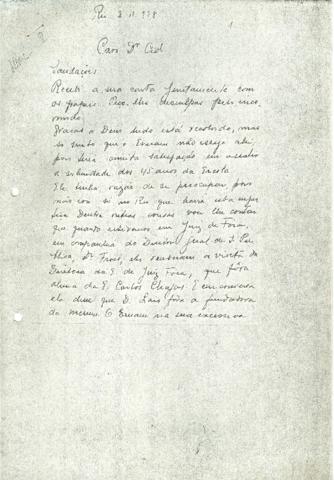 Rio 3 11 978
1
Caro Dr Ced
Saudações
Recebi a sua carta juntamente com
os papeis. Peço lhe desculpas pelo inco
modo.
Graças a Deus tudo está resolvido, mas
eu sinto que o Ernani não esteja ahi
pois seria muita satisfação em assistir
a solenidade dos 45 anos da Escola
Ele tinha razão de se preocupar pois
não era só no Rio que havia esta
Dentre outras cousas vou lhe contar
que quando estivemos em Juiz de Fora,
em companhia do Diretor geral de S. Pu
blica, Dr Froes, eles receberam a visita da
Diretora da E. de Juiz Fora, que fôra
aluna da E. Carlos Chagas. E em conversa
ela disse que D. Lais fôra a fundadora
da mesma. O Ernani na sua excessiva